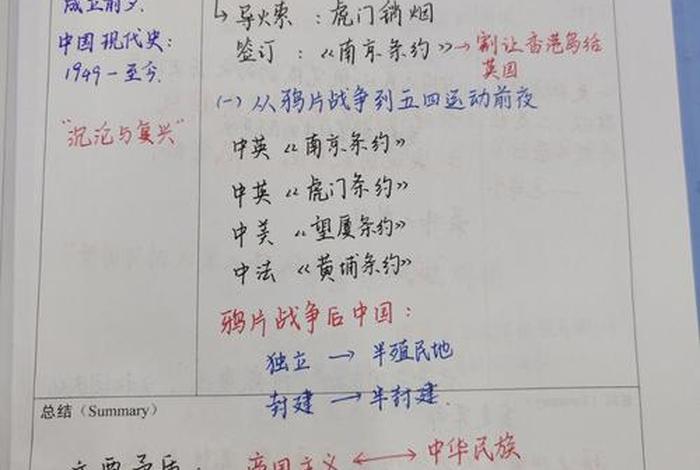 成立前夕.
中国现代史:
1949-至今.
"沉沦与复兴"
↳导火索:虎门销烟
签订:《南京条约》→割让香港岛给
英国
(一)从鸦片战争到五四运动前夜
中英《南京条约》
中英《虎门条约》
中美《望厦条约》
中法《黄埔条约》
鸦片战争后中国:
独立→半殖民地
封建→半封建.
总结(Summary)
主要矛盾:帝国主义↔中华民族